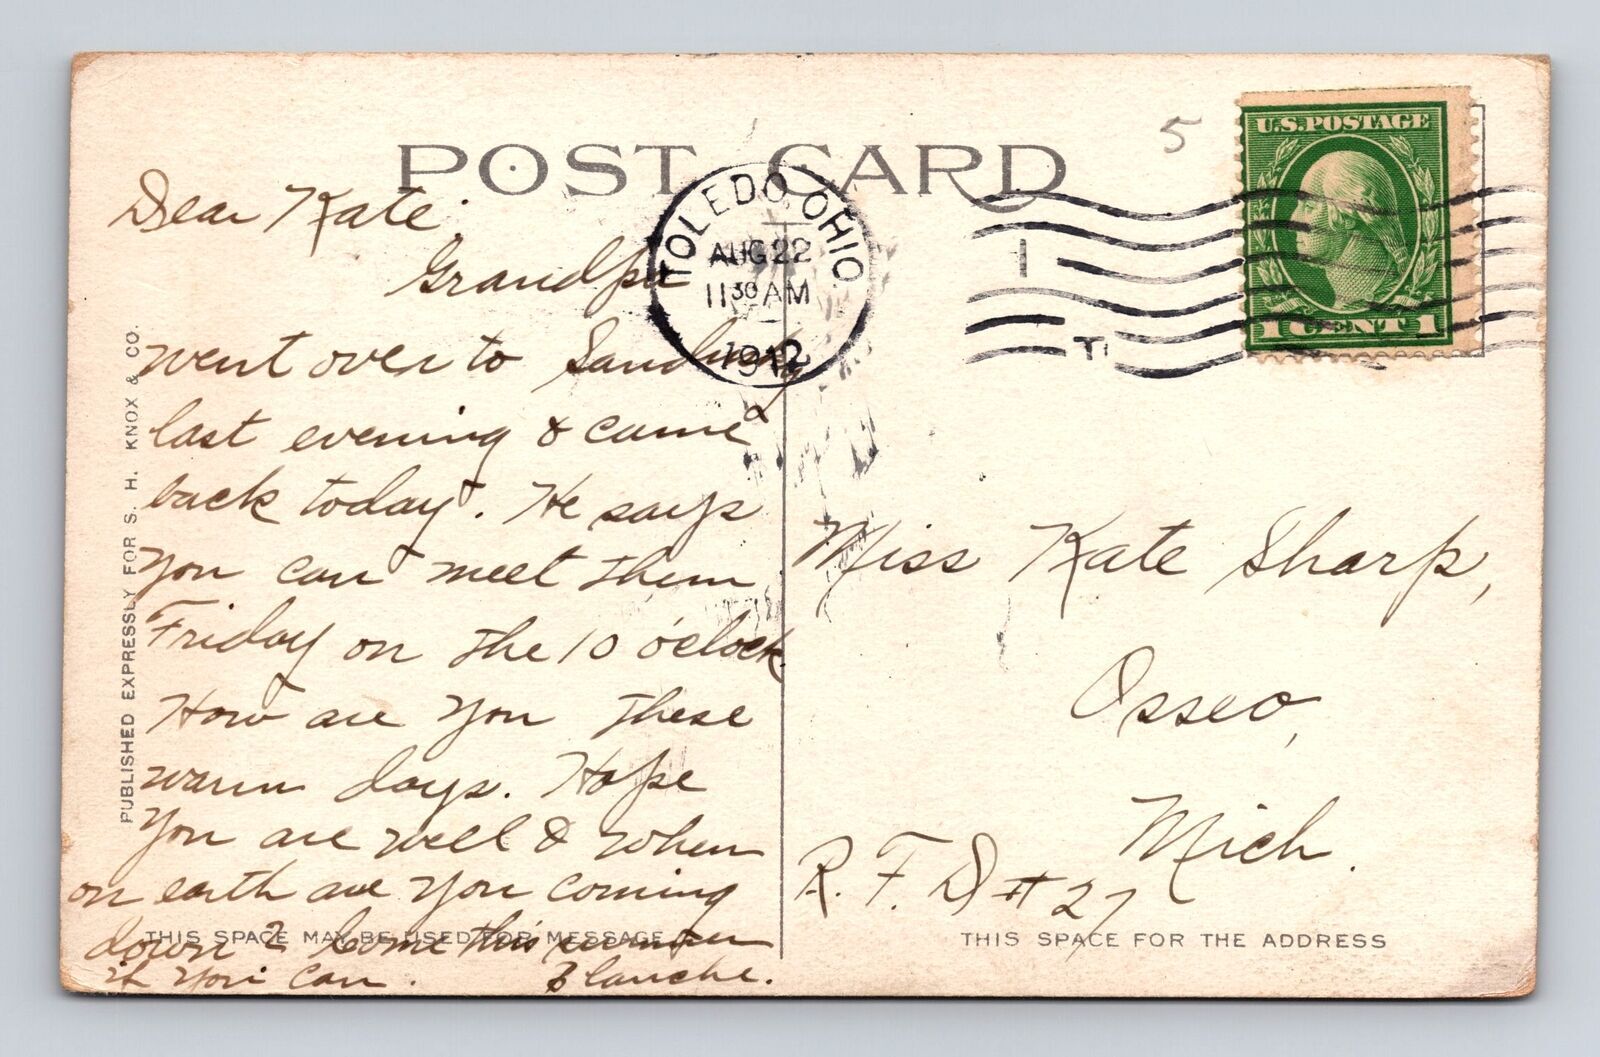 POST CARD
U.S. POSTAGE
1 CENT 1
5
TOLEDO, OHIO
AUG 22
11 30 AM
1912
Dear Kate:
Grandpa
went over to Sandusky
last evening & came
back today. He says
you can meet them
Friday on the 10 o'clock
How are you these
warm days. Hope
you are well & when
on earth are you coming
down? Come this summer
if you can. Blanche.
THIS SPACE MAY BE USED FOR MESSAGE
Miss Kate Sharp,
Osseo,
Mich.
R. F. D # 27
THIS SPACE FOR THE ADDRESS
PUBLISHED EXPRESSLY FOR S. H. KNOX & CO.